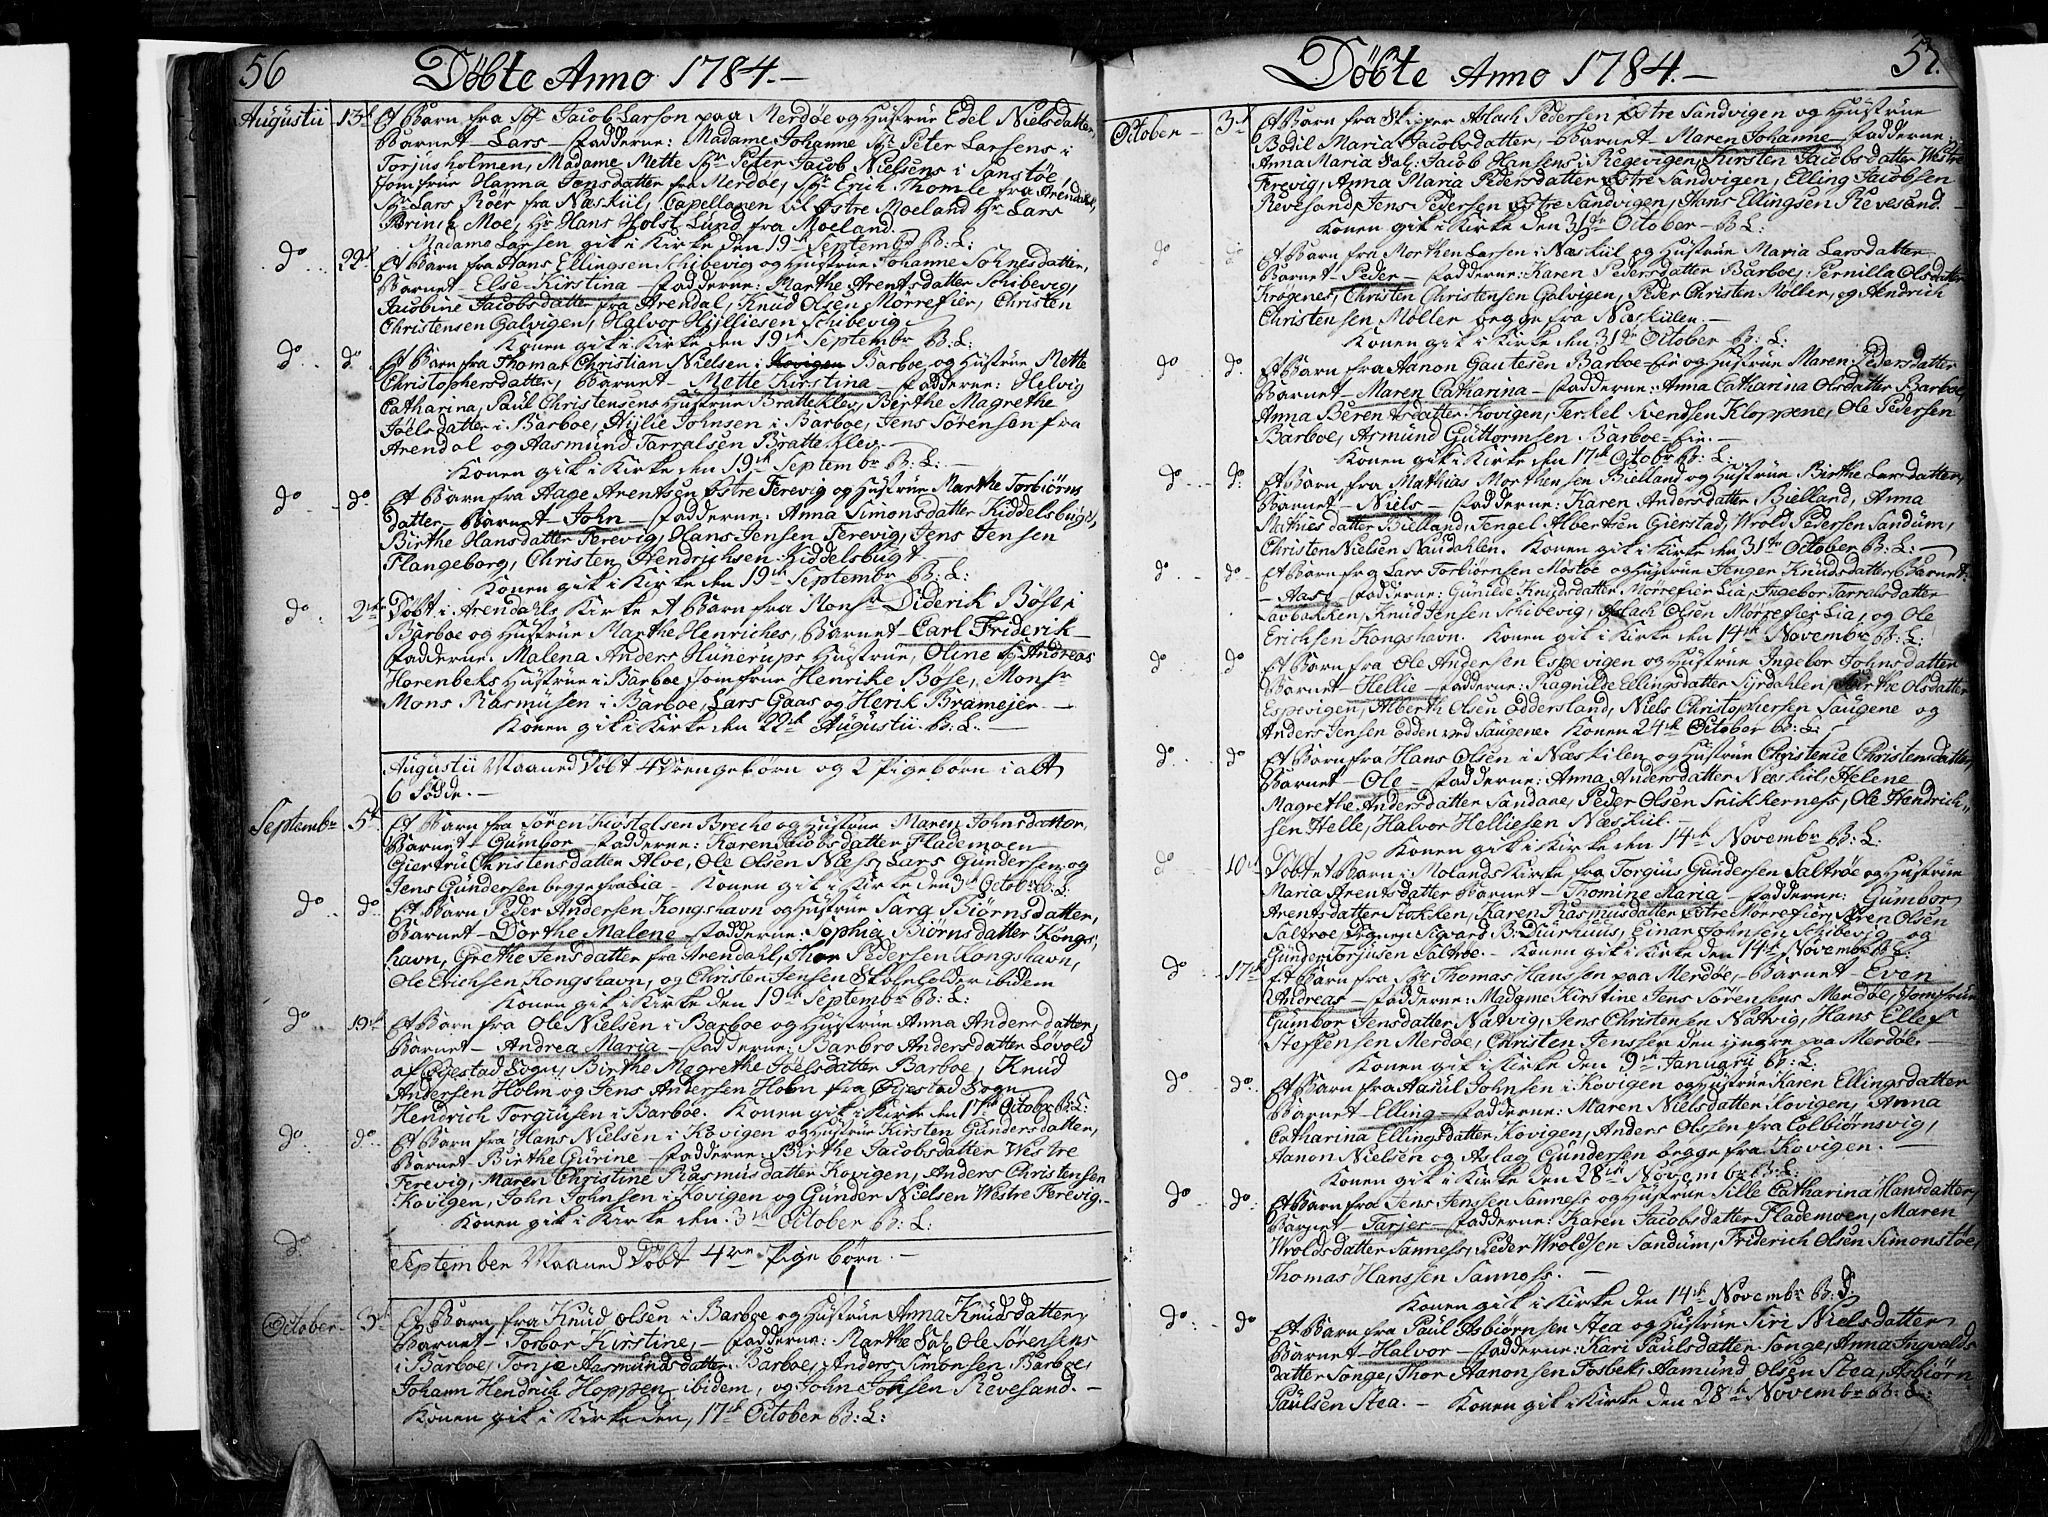 56
Döbte Anno 1784.-
Augustii 13de Et Barn fra Sr Jacob Larson paa Merdöe og Hustrue Edel Nielsdatter,
Barnet - Lars - Fadderne: Madame Johanne Sr Peter Larsens i
Torjusholmen, Madame Mette Sr Peder Jacob Nielsens i Sanstöe,
Jomfrue Hanna Jensdatter fra Merdöe, Sr Erich Thomle fra Arendal,
Sr Lars Röer fra Næskiil, Capellanen til Östre Moeland Hr Lars
Brinck Moe, Hr Hans Holst Lund fra Moeland.
Madame Larsen gik i Kirke den 19de Septembr B: L:
do 22de Et Barn fra Hans Ellingsen Schibevig og Hustrue Johanne Johnsdatter,
Barnet - Else Kirstina - Fadderne: Marthe Arentsdatter Schibevig,
Jacobine Jacobsdatter fra Arendal, Knud Olsen Mörrefier, Christen
Christensen Galvigen, Halvor Hylliesen Schibevig.
Konen gik i Kirke den 19de Septembr B: L:
do do Et Barn fra Thomas Christian Nielsen i Kovigen Barboe, og Hustrue Mette
Christophersdatter, Barnet - Mette Kirstina - Fadderne: Helvig
Catharina, Paul Christensens Hustrue Bratteklev, Birthe Magrethe
Joelsdatter i Barboe, Hylie Johnsen i Barboe, Jens Sörensen fra
Arendal og Aasmund Tarralsen Bratteklev.
Konen gik i Kirke den 19de Septembr B: L: -
do do Et Barn fra Aage Arentsen Östre Ferevig og Hustrue Marthe Torbiörns
datter - Barnet - John - Fadderne: Anna Simonsdatter Kiddelsbugt,
Birthe Hansdatter Ferevig, Hans Jensen Ferevig, Jens Jensen
Flangeborg, Christen Hendrichsen Kiddelsbugt -
Konen gik i Kirke den 19de Septembr B: L:
do 2de Döbt i Arendahls Kirke et Barn fra Monsr Diderik Böse i
Barboe og Hustrue Marthe Henriches, Barnet - Carl Friderik -
Fadderne: Malena Anders Hünerups Hustrue, Oline Sr Andreas
Horenbeks Hustrue i Barboe, Jomfrue Henrike Böse, Monsr
Mons Rasmusen i Barboe, Lars Gaas og Henrik Bramejer. -
Konen gik i Kirke den 22de Augustii B: L: -
Augustii Maaned Döbt 4 Drengebörn og 2 Pigebörn i alt
6 Födde. -
Septembr 5te Et Barn fra Sören Knstolsen Breche og Hustrue Maren Johnsdatter,
Barnet - Gumbor - Fadderne: Karen Jacobsdatter Flademoen
Giertru Christensdatter Alve, Ole Olsen Næss, Lars Gundersen og
Jens Gundersen begge fra Lia - Konen gik i Kirke den 3de Octobr B: L:
do do Et Barn Peder Andersen Kongshavn og Hustrue Sara Biörnsdatter,
Barnet - Dorthe Malene - Fadderne: Sophia Biörnsdatter Kongs-
havn, Grethe Jensdatter fra Arendahl, Thor Pedersen Kongshavn,
Ole Erichsen Kongshavn, og Christen Jensen Skoeholder ibidem
Konen gik i Kirke den 19de Septembr B: L:
do 19de Et Barn fra Ole Nielsen i Barboe og Hustrue Anna Andersdatter,
Barnet - Andrea Maria - Fadderne: Barbro Andersdatter Lövold
af Öyestad Sogn, Birthe Magrethe Joelsdatter Barboe, Knud
Andersen Holm og Jens Andersen Holm fra Öyestad Sogn
Hendrich Torgiusen i Barboe. Konen gik i Kirke den 17de Octobr B: L:
do do Et Barn fra Hans Nielsen i Kovigen og Hustrue Kirsten Gundersdatter,
Barnet - Birthe Gurine - Fadderne: Birthe Jacobsdatter Westre
Ferevig, Maren Christine Rasmusdatter Kovigen, Anders Christensen
Kovigen, John Johnsen i Kovigen og Gunder Nielsen Westre Ferevig. -
Konen gik i Kirke den 3de October B: L:
do September Maaned Döbt 4re Pige börn. -
October 3de Et Barn fra Knud Olsen i Barboe og Hustrue Anna Knudsdatter
Barnet - Torbor Kirstine - Fadderne: Marthe Sal. Ole Sörensens
i Barboe, Tonje Aasmundsdatter Barboe, Anders Simonsen Barboe,
Johann Hendrich Hoppen ibidem, og John Johsen Revesand. -
Konen gik i Kirke den 17de October B: L:
57.
Döbte Anno 1784. -
October 3de Et Barn fra Skipper Aslach Pedersen Östre Sandvigen og Hustrue
Bodil Maria Jacobsdatter, Barnet - Maren Johanne - Fadderne:
Anna Maria Sal: Jacob Hansens i Regevigen, Kirsten Jacobsdatter Westre
Ferevig, Anna Maria Pedersdatter Östre Sandvigen, Elling Jacobsen
Revesand, Jens Pedersen Östre Sandvigen, Hans Ellingsen Revesand. -
Konen gik i Kirke den 31de October - B: L:
do do Et Barn fra Morthen Larsen i Næskiil og Hustrue Maria Larsdatter
Barnet - Peder - Fadderne: Karen Pedersdatter Barboe, Pernilla Olsdatter
Krögenes, Christen Christensen Galvigen, Peder Christen Möller, og Hendrich
Christensen Möller begge fra Næskiilen. -
Konen gik i Kirke den 31de October B: L:
do do. Et Barn fra Aanon Gautesen Barboe-Eie og Hustrue Maren Pedersdatter
Barnet - Maren Catharina - Fadderne: Anna Catharina Olsdatter Barboe,
Anna Berentsdatter Kovigen, Terkel Svendsen Kloppene, Ole Pedersen
Barboe, Asmund Guttormsen Barboe-Eie. -
Konen gik i Kirke den 17de Octobr B: L:
do do: Et Barn fra Mathias Morthensen Bielland og Hustrue Birthe Larsdatter,
Barnet - Niels - Fadderne: Karen Andersdatter Bielland, Anna
Mathiesdatter Bielland, Tengel Albertsen Gierstad, Wrold Pedersen Sandum,
Christen Nielsen Naudahlen. Konen gik i Kirke den 31de October B: L: -
do do Et Barn fra Lars Torbiörnsen Mostöe og Hustrue Jenger Knudsdatter, Barnet
- Aase - Fadderne: Gunilde Knudsdatter Mörrefier Lia, Ingebor Tarralsdatter
Lavbakken, Knud Jensen Schibevig, Aslach Olsen Mörrefier Lia, og Ole
Erichsen Kongshavn. Konen gik i Kirke den 14de Novembr B: L:
do do Et Barn fra Ole Andersen Espevigen og Hustrue Ingebor Johnsdatter
Barnet - Hellie - Fadderne: Ragnilde Ellingsdatter Syrdahlen, Birthe Olsdatter
Espevigen, Alberth Olsen Oddersland, Niels Christophersen Saugene og
Anders Jensen Odden ved Saugene. Konen 24de October B: L:
do do Et Barn fra Hans Olsen i Næskilen og Hustrue Christence Christensdatter,
Barnet - Ole - Fadderne: Anna Andersdatter Næskiil, Helene
Magrethe Andersdatter Sandane, Peder Olsen Snikkerness, Ole Hendrich-
sen Helle, Halvor Helliesen Næskiil. -
Konen gik i Kirke den 14de Novembr B: L:
do 10de Döbt et Barn i Molands Kirke fra Torgius Gundersen Saltröe og Hustrue
Maria Arentsdatter Barnet - Thomine Maria - Fadderne: Gumbor
Arentsdatter Stokken, Karen Rasmusdatter Östre Mörrefier, Sören Olsen
Saltröe, Degnen Sigvard B: Duurhuus, Einar Johnsen Schibevig og
Gunder Torjusen Saltröe. - Konen gik i Kirke den 14de Novembr B: L:
do 17de Et Barn fra Sr Thomas Hanssen paa Merdöe, - Barnet - Even
Andreas - Fadderne: Madame Kirstine Jens Sörensens Merdöe, Jomfrue
Gumbor Jensdatter Natvig, Jens Christensen Natvig, Hans Ellef
Steffensen Merdöe, Christen Jenssen den yngre paa Merdöe. -
Konen gik i Kirke den 9de January B: L:
do do. Et Barn fra Aasul Johnsen i Kovigen og Hustrue Karen Ellingsdatter
Barnet - Elling - Fadderne: Maren Nielsdatter Kovigen, Anna
Catharina Ellingsdatter Kovigen, Anders Olssen fra Colbiörnsvig,
Aanon Nielsen og Aslag Gundersen begge fra Kovigen. -
Konen gik i Kirke den 28de Novembr B: L:
do do: Et Barn fra Jens Jenssen Sanness og Hustrue Sille Catharina Hansdatter,
Barnet - Tarjer - Fadderne: Karen Jacobsdatter Flademoen, Maren
Wroldsdatter Sanness, Peder Wroldsen Sandum, Friderich Olsen Simonstöe,
Thomas Hanssen Sanness. -
Konen gik i Kirke den 14de Novembr B: L:
do do Et Barn fra Paul Asbiörnsen Stea og Hustrue Siri Nielsdatter
Barnet - Halvor - Fadderne: Kari Paulsdatter Songe, Anna Ingvalds
datter Songe, Thor Aanonsen Fosbek, Aamund Olsen Stea, Asbiörn
Paulsen Stea. - Konen gik i Kirke den 28de Novembr B: L: